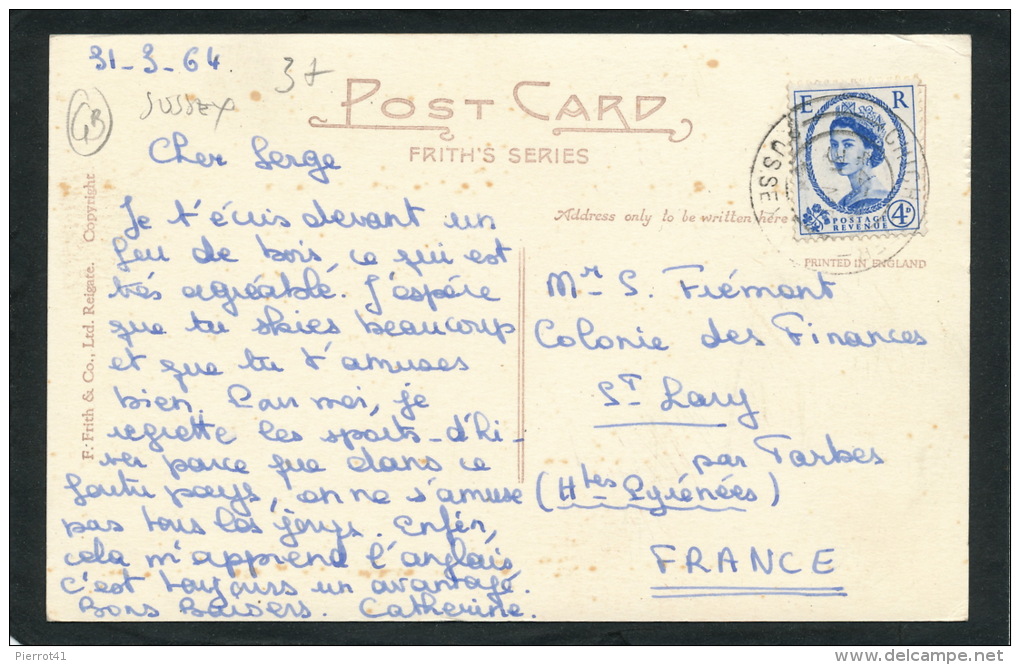 31-3-64.
37
GB
SUSSEX
POST CARD
FRITH'S SERIES
Cher Serge
Je t'écris devant un
feu de bois, ce qui est
très agréable. J'espère
que tu skies beaucoup
et que tu t'amuses
bien. Pour moi, je
regrette les sports-d'hi-
ver parce que dans ce
foutu pays, on ne s'amuse
pas tous les jours. Enfin,
cela m'apprend l'anglais
c'est toujours un avantage.
Bons Baisers. Catherine.
F. Frith & Co., Ltd. Reigate. Copyright
Address only to be written here
E R
POSTAGE
REVENUE
4D
SUSSE
PRINTED IN ENGLAND
Mr S. Frémont
Colonie des Finances
St Lary
par Tarbes
(Htes Pyrénées)
FRANCE
Pierrot41
www.delcampe.net